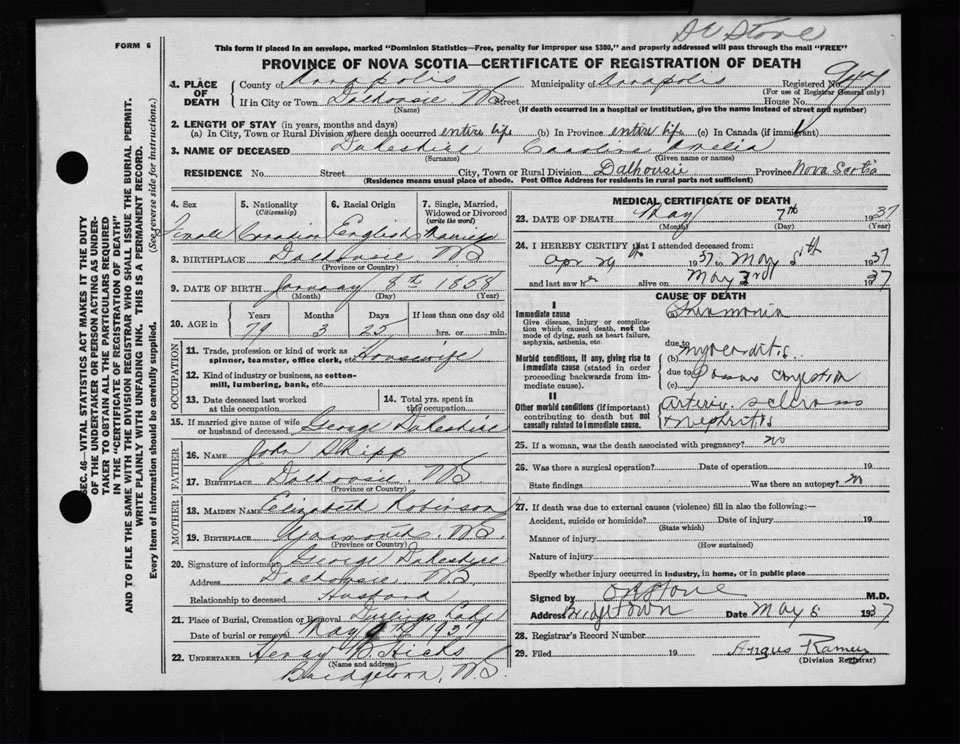 Dr Stone
FORM 6
This form if placed in an envelope, marked "Dominion Statistics—Free, penalty for improper use $300," and properly addressed will pass through the mail "FREE"
PROVINCE OF NOVA SCOTIA—CERTIFICATE OF REGISTRATION OF DEATH
1. PLACE OF DEATH County of Annapolis Municipality of Annapolis Registered No.
(For use of Registrar General only)
If in City or Town Dalhousie NS Street House No.
(Name) (If death occurred in a hospital or institution, give the name instead of street and number)
2. LENGTH OF STAY (in years, months and days)
(a) In City, Town or Rural Division where death occurred entire life (b) In Province entire life (c) In Canada (if immigrant)
3. NAME OF DECEASED Dukeshire Caroline Amelia
(Surname) (Given name or names)
RESIDENCE No. Street City, Town or Rural Division Dalhousie Province Nova Scotia
(Residence means usual place of abode. Post Office Address for residents in rural parts not sufficient)
4. Sex 5. Nationality (Citizenship) 6. Racial Origin 7. Single, Married, Widowed or Divorced (write the word)
Female Canadian English Married
8. BIRTHPLACE Dalhousie NS
(Province or Country)
9. DATE OF BIRTH January 8th 1858
(Month) (Day) (Year)
10. AGE in Years Months Days If less than one day old
79 3 25 hrs. or min.
OCCUPATION
11. Trade, profession or kind of work as spinner, teamster, office clerk, etc. Housewife
12. Kind of industry or business, as cotton-mill, lumbering, bank, etc.
13. Date deceased last worked at this occupation
14. Total yrs. spent in this occupation
15. If married give name of wife or husband of deceased George Dukeshire
FATHER
16. Name John Shipp
17. Birthplace Dalhousie NS
(Province or Country)
MOTHER
18. Maiden Name Elizabeth Robinson
19. Birthplace NS
(Province or Country)
20. Signature of informant George Dukeshire
Address Dalhousie NS
Relationship to deceased Husband
21. Place of Burial, Cremation or Removal
Date of burial or removal May 1937
22. UNDERTAKER Henry B. Hicks
(Name and address)
Bridgetown, NS
MEDICAL CERTIFICATE OF DEATH
23. DATE OF DEATH May 7th 1937
(Month) (Day) (Year)
24. I HEREBY CERTIFY that I attended deceased from:
Apr 29th 1937 to May 5th 1937
and last saw her alive on May 3rd 1937
CAUSE OF DEATH
I
Immediate cause
Give disease, injury or complication which caused death, not the mode of dying, such as heart failure, asphyxia, asthenia, etc.
Pneumonia
Morbid conditions, if any, giving rise to immediate cause (stated in order proceeding backwards from immediate cause).
due to
(b) Myocarditis
due to
(c) congestion
II
Other morbid conditions (if important) contributing to death but not causally related to immediate cause.
Arterio sclerosis
Nephritis
25. If a woman, was the death associated with pregnancy? no
26. Was there a surgical operation? Date of operation 19
State findings Was there an autopsy? no
27. If death was due to external causes (violence) fill in also the following:—
Accident, suicide or homicide? Date of injury 19
(State which)
Manner of injury
(How sustained)
Nature of injury
Specify whether injury occurred in industry, in home, or in public place
Signed by Stone M.D.
Address Bridgetown Date May 5 1937
28. Registrar's Record Number
29. Filed 19 Angus Ramey
(Division Registrar)
SEC. 46—VITAL STATISTICS ACT MAKES IT THE DUTY
OF THE UNDERTAKER OR PERSON ACTING AS UNDER-
TAKER TO OBTAIN ALL THE PARTICULARS REQUIRED
IN THE "CERTIFICATE OF REGISTRATION OF DEATH"
AND TO FILE THE SAME WITH THE DIVISION REGISTRAR WHO SHALL ISSUE THE BURIAL PERMIT.
WRITE PLAINLY WITH UNFADING INK. THIS IS A PERMANENT RECORD.
Every item of information should be carefully supplied. (See reverse side for instructions.)